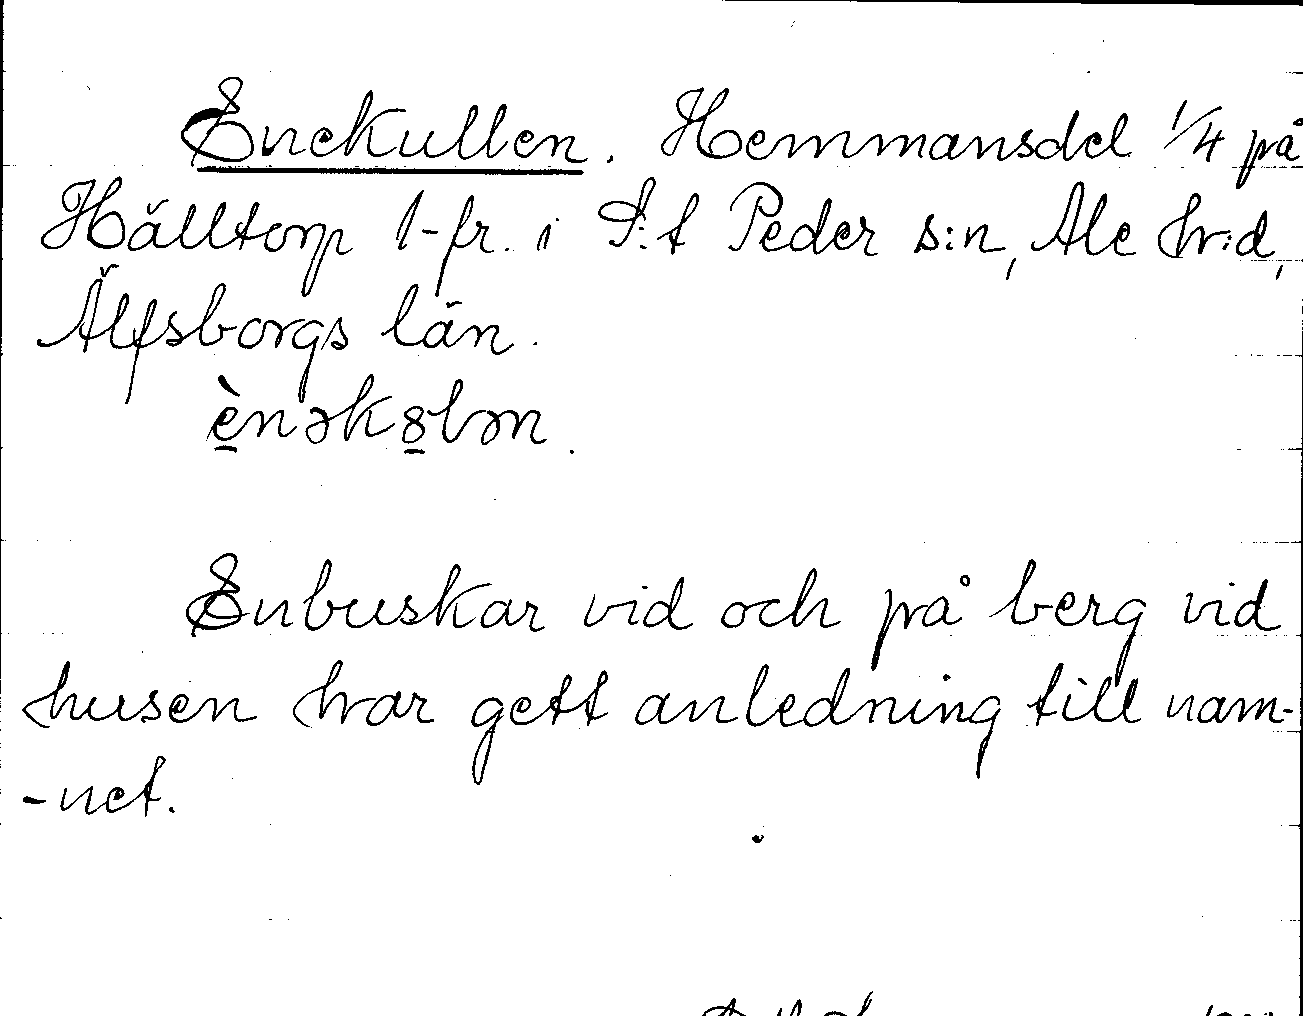 Enekullen. Hemmansdel 1/4 på
Hälltorp 1-fr. i S:t Peder s:n, Ale h:d,
Älfsborgs län.
è̱nəkȣ̱lən.
Enbuskar vid och på berg vid
husen har gett anledning till nam-
-net.